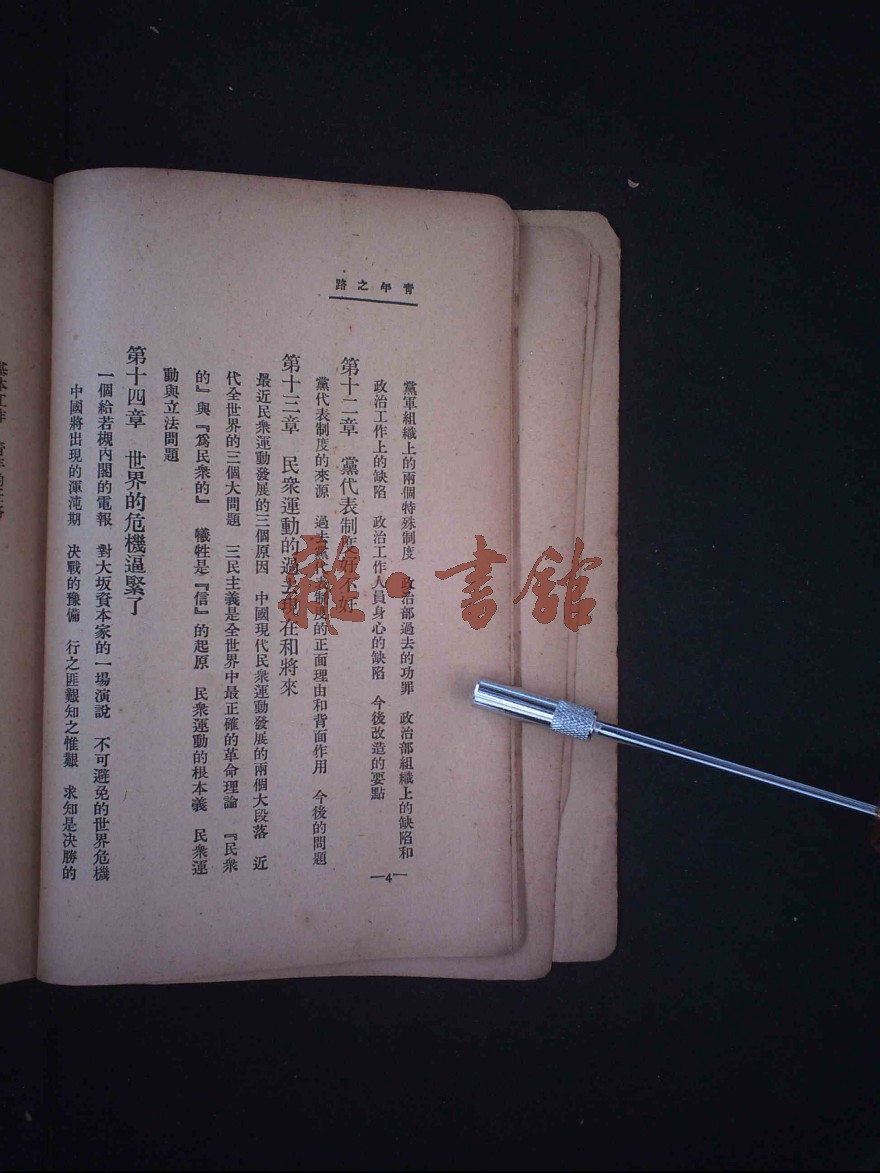 青年之路
黨軍組織上的兩個特殊制度　政治部過去的功罪　政治部組織上的缺陷和
政治工作上的缺陷　政治工作人員身心的缺陷　今後改造的要點
第十二章　黨代表制度好不好
黨代表制度的來源　過去黨代表制度的正面理由和背面作用　今後的問題
第十三章　民衆運動的過去現在和將來
最近民衆運動發展的三個原因　中國現代民衆運動發展的兩個大段落　近
代全世界的三個大問題　三民主義是全世界中最正確的革命理論　『民衆
的』與『爲民衆的』　犧牲是『信』的起原　民衆運動的根本義　民衆運
動與立法問題
第十四章　世界的危機逼緊了
一個給若槻內閣的電報　對大坂資本家的一場演說　不可避免的世界危機
中國將出現的渾沌期　決戰的豫備　行之匪艱知之惟艱　求知是決勝的
—4—
雜·書館